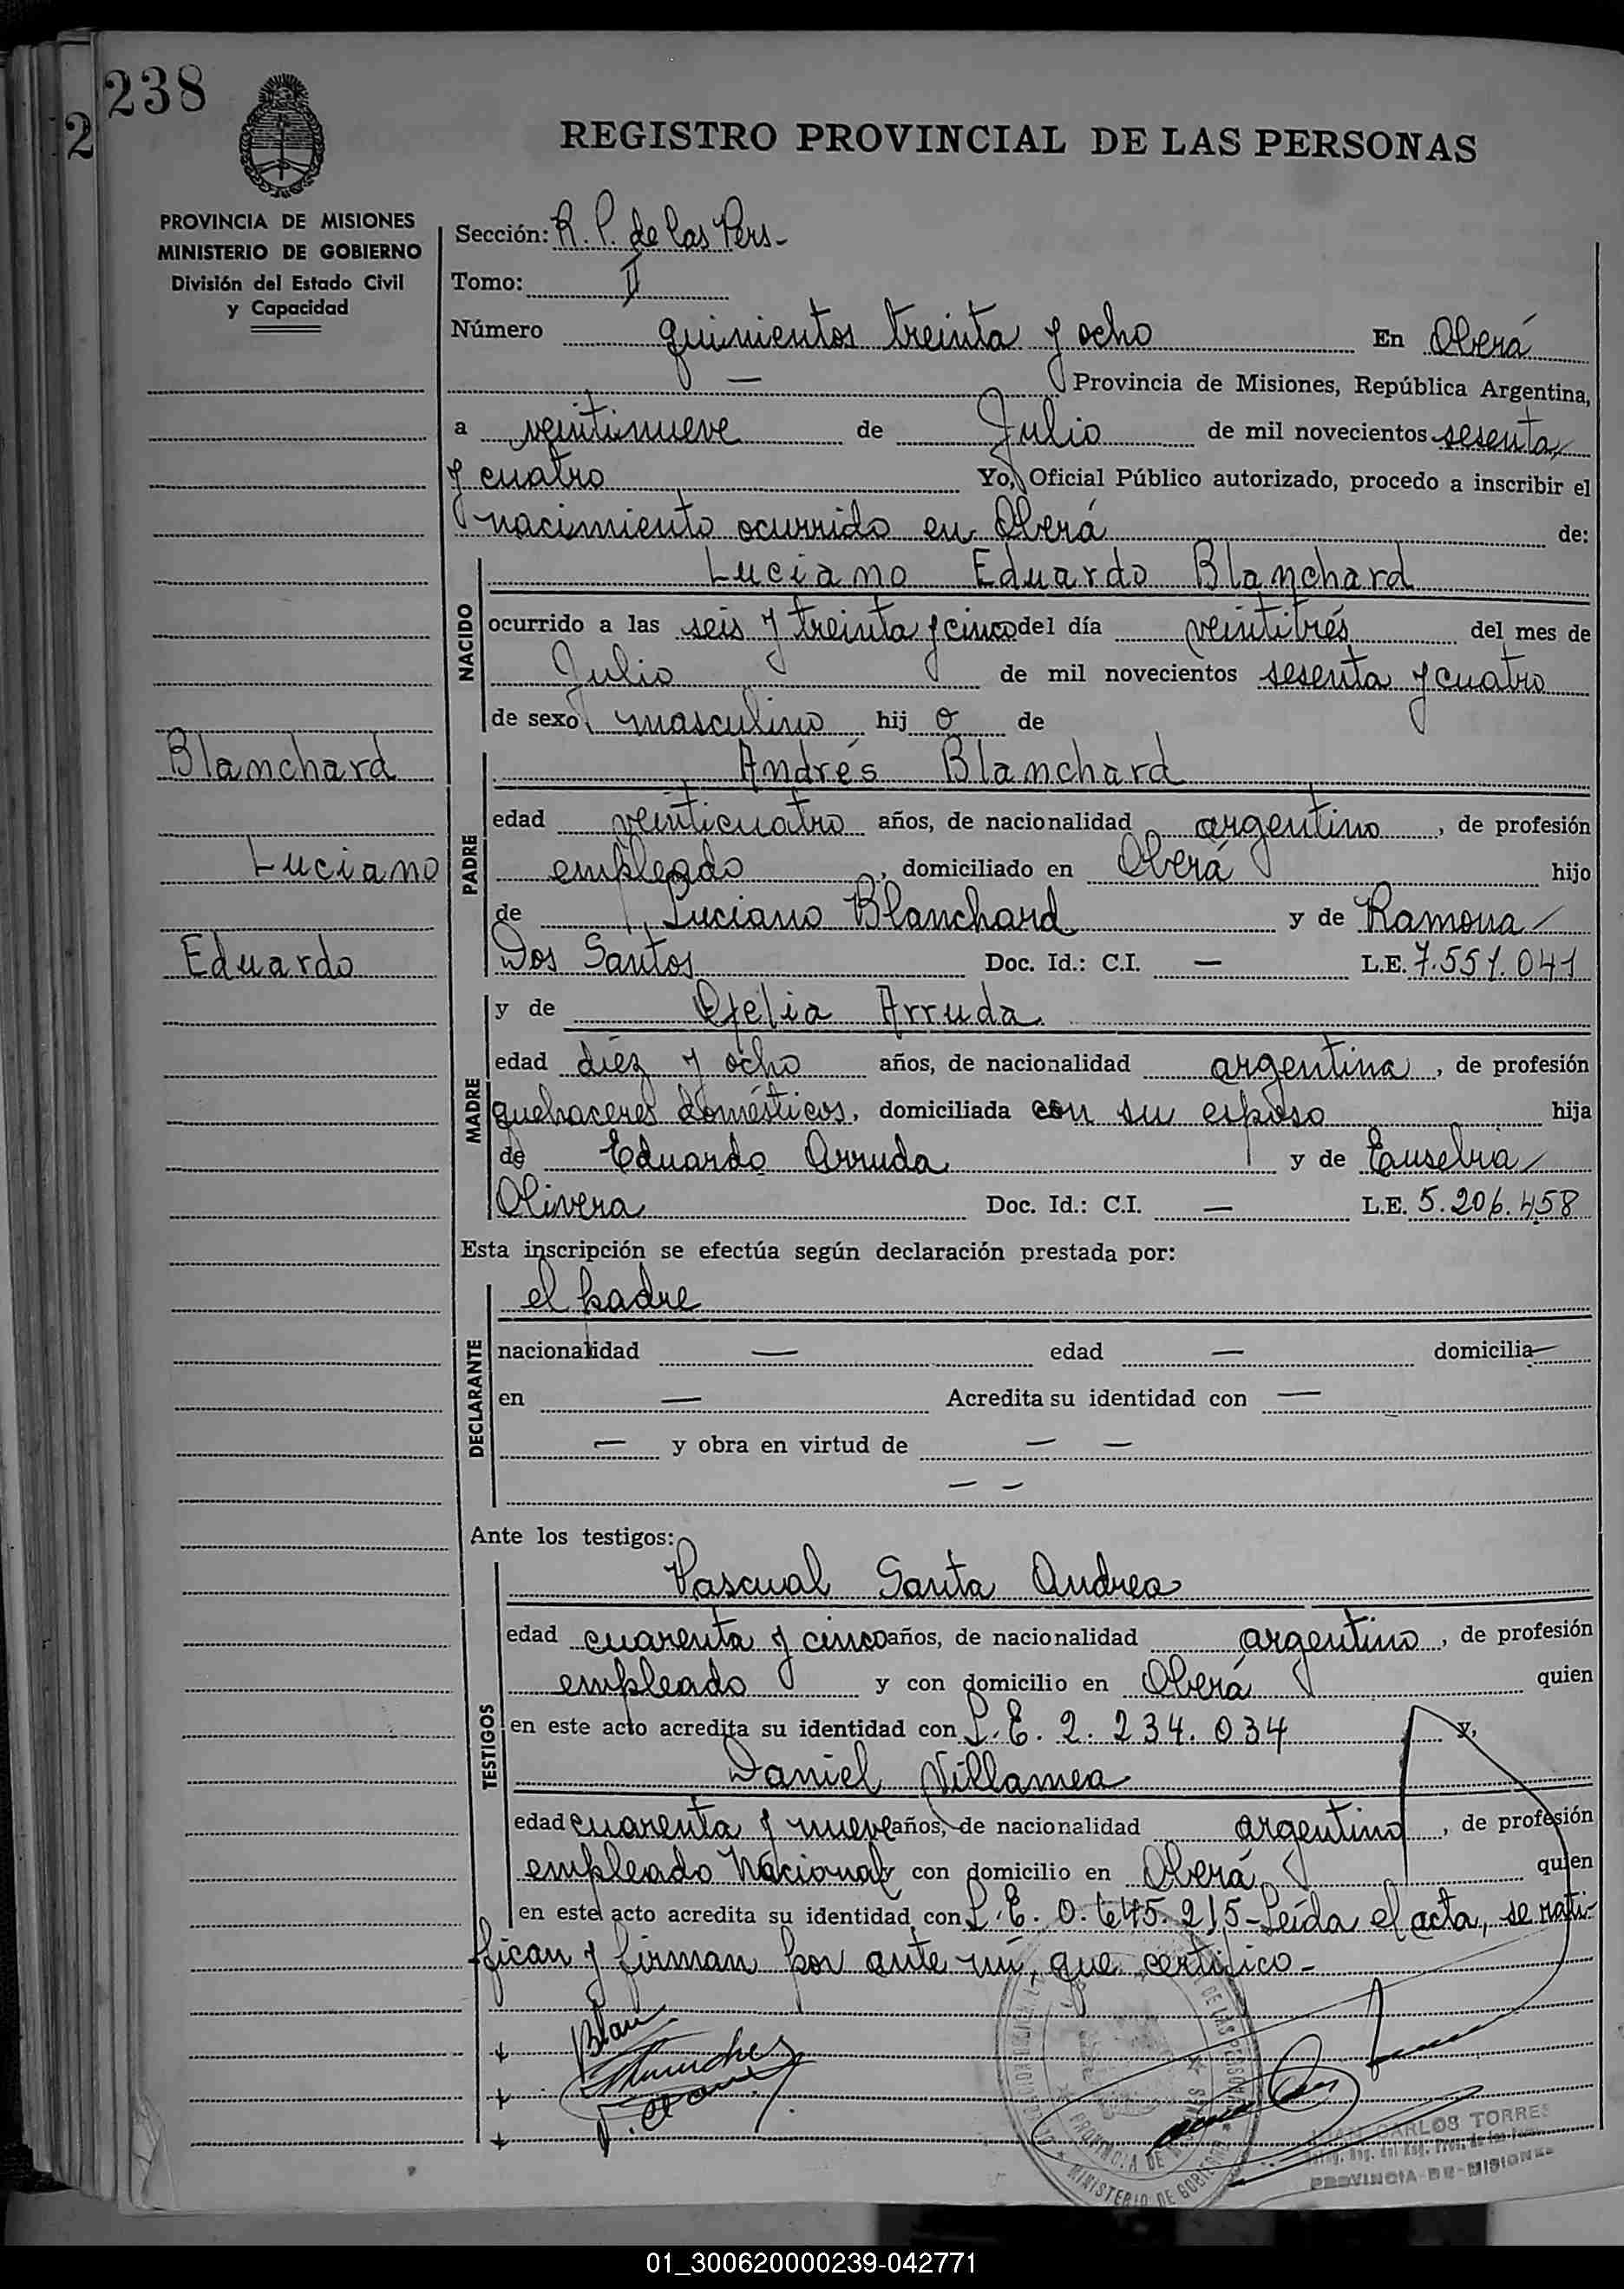 238
2
REGISTRO PROVINCIAL DE LAS PERSONAS
PROVINCIA DE MISIONES
MINISTERIO DE GOBIERNO
División del Estado Civil
y Capacidad
Sección: R. P. de las Pers-
Tomo: II
Número quinientos treinta y ocho En Oberá
— Provincia de Misiones, República Argentina,
a veintinueve de Julio de mil novecientos sesenta
y cuatro Yo, Oficial Público autorizado, procedo a inscribir el
nacimiento ocurrido en Oberá de:
NACIDO
Luciano Eduardo Blanchard
ocurrido a las seis y treinta y cinco del día veintitrés del mes de
Julio de mil novecientos sesenta y cuatro
de sexo masculino hij o de
Blanchard
Luciano
Eduardo
PADRE
Andrés Blanchard
edad veinticuatro años, de nacionalidad argentino, de profesión
empleado, domiciliado en Oberá hijo
de Luciano Blanchard y de Ramona
Dos Santos Doc. Id.: C.I. — L.E. 7.551.041
MADRE
y de Ofelia Arruda
edad diez y ocho años, de nacionalidad argentina, de profesión
quehaceres domésticos, domiciliada con su esposo hija
de Eduardo Arruda y de Eusebia
Olivera Doc. Id.: C.I. — L.E. 5.206.458
Esta inscripción se efectúa según declaración prestada por:
DECLARANTE
el padre
nacionalidad — edad — domicilia—
en — Acredita su identidad con —
— y obra en virtud de — —
— —
Ante los testigos:
TESTIGOS
Pascual Santa Andrea
edad cuarenta y cinco años, de nacionalidad argentino, de profesión
empleado y con domicilio en Oberá quien
en este acto acredita su identidad con L. E. 2. 234. 034 y,
Daniel Villamea
edad cuarenta y nueve años, de nacionalidad argentino, de profesión
empleado Nacional y con domicilio en Oberá quien
en este acto acredita su identidad con L. E. 0. 645. 215- Leída el acta, se rati-
fican y firman por ante mí, que certifico-
Blan
PROVINCIA DE MISIONES
MINISTERIO DE GOBIERNO
JUAN CARLOS TORRES
PROVINCIA DE MISIONES
01_300620000239-042771